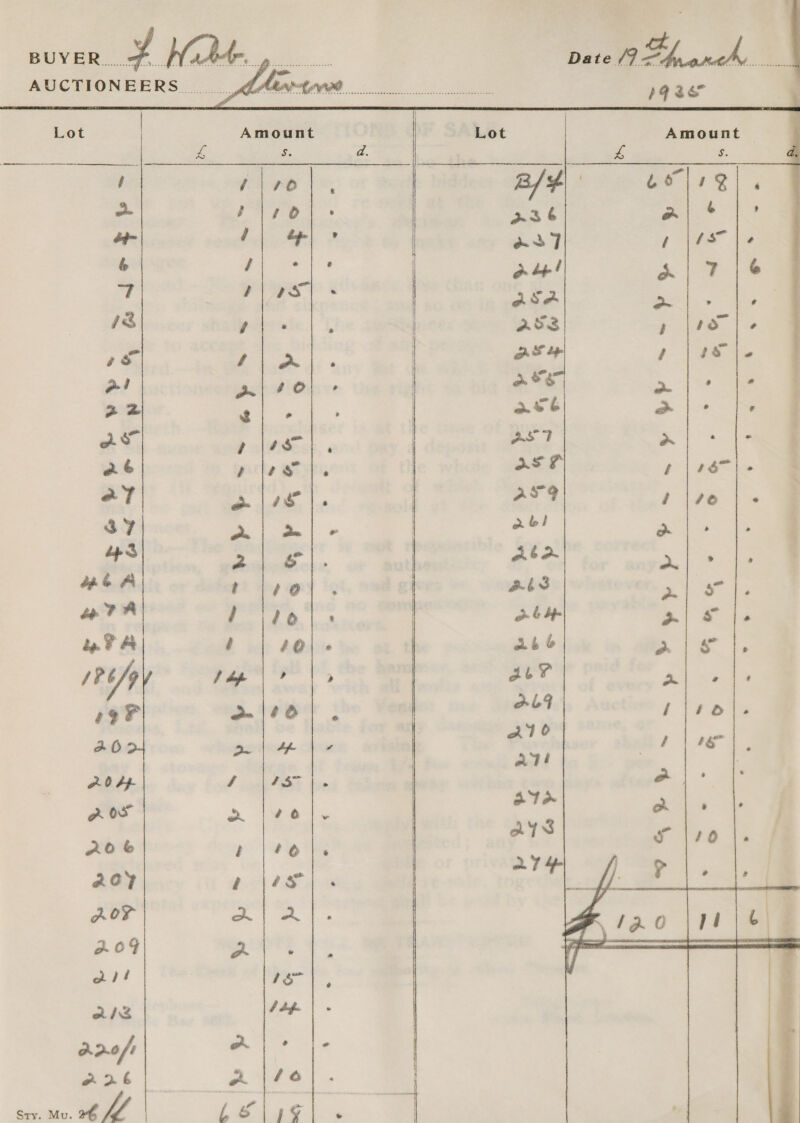 BUYER F. Webb.
Date 19th March
AUCTIONEERS Stevens
1935
Lot Amount
£ s. d.
1 1 10 .
2 1 10 .
4 1 4 .
6 1 . .
7 1 15 .
13 1 . .
15 1 2 .
21 2 10 .
22 3 . .
25 1 15 .
26 1 15 .
27 2 15 .
37 2 2 .
43 2 5 .
46A 1 10 .
47A 1 10 .
48A 1 10 .
186/91 14 . .
198 2 10 .
202 2 4 .
204 1 15 .
205 2 10 .
206 1 10 .
207 1 15 .
208 2 2 .
209 2 . .
211 15 .
213 14 .
220/1 2 . .
226 2 10 .
65 18 .
Sty. Mu. 26
Lot Amount
£ s. d.
B/F 65 18 .
236 2 6 .
237 1 15 .
241 2 7 6
252 2 . .
253 1 15 .
254 1 15 .
255 2 . .
256 2 . .
257 2 . .
258 1 15 .
259 1 10 .
261 2 . .
262 2 . .
263 2 5 .
264 2 5 .
266 2 5 .
268 2 . .
269 1 10 .
270 1 15 .
271 2 . .
272 2 . .
273 5 10 .
274 8 . .
£ 120 11 6